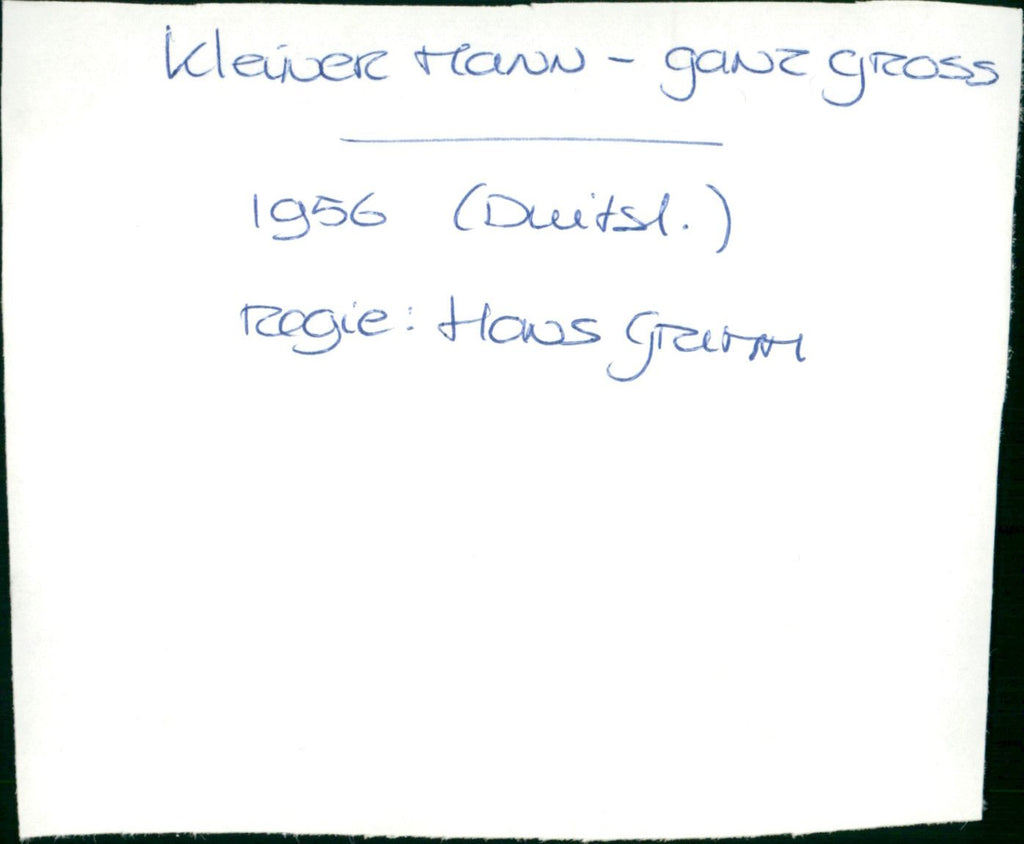 Kleiner Mann - ganz gross
1956 (Duitsl.)
Regie: Hans Grimm